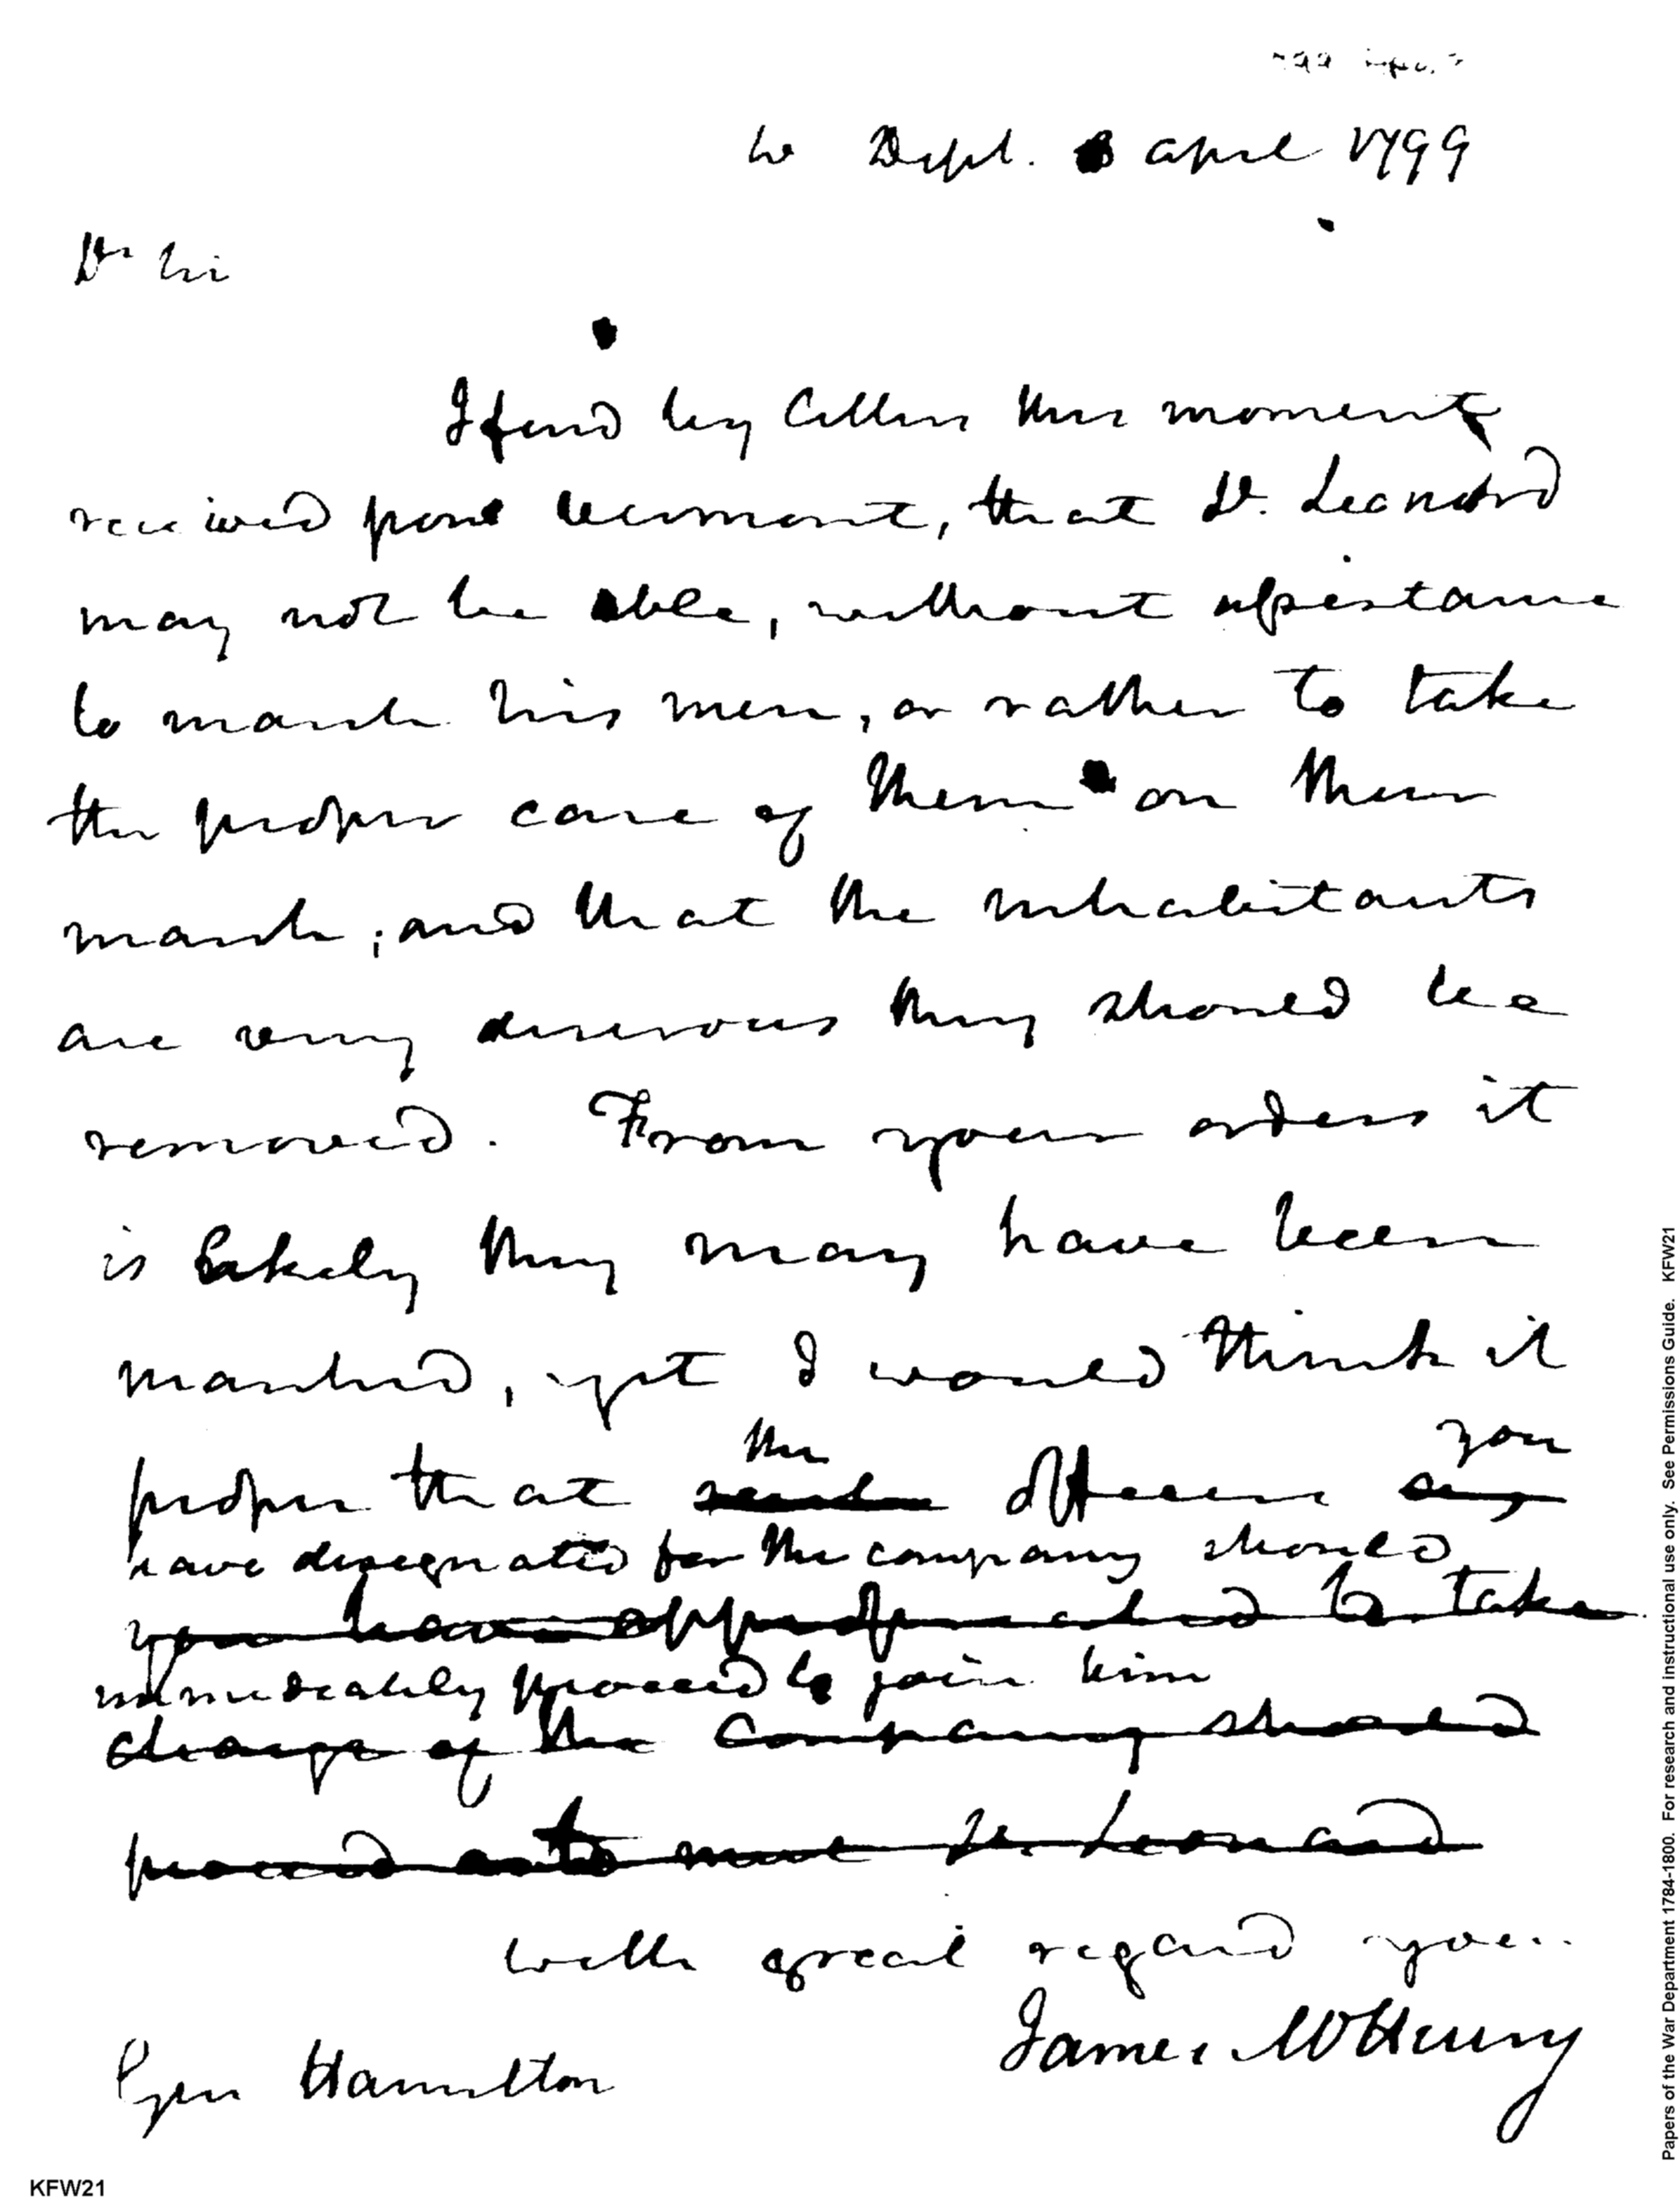 W Dept. 8 april 1799
Dr Sir
I find by letters this moment
received from Vermont, that Lt. Leonard
may not be able, without assistance
to march his men, or rather to take
the proper care of them on their
march; and that the inhabitants
are very desirous they should be
removed. From your orders it
is likely they may have been
marched, yet I would think it
the you
proper that officer
have designated for the company should
you have appropriated to take
immediately proceed to join him
charge of the Company should
proceed to meet Lt. Leonard
With great regard your
James McHenry
Gen Hamilton
KFW21
Papers of the War Department 1784-1800. For research and instructional use only. See Permissions Guide. KFW21